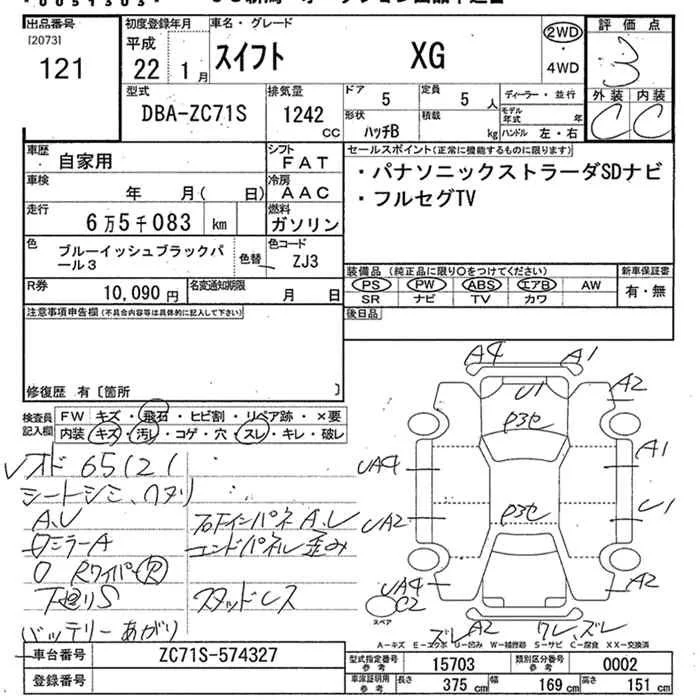 出品番号
[2073]
121
初度登録年月
平成
22 1月
車名・グレード
スイフト XG
2WD
・
4WD
評価点
3
外装 内装
C C
型式
DBA-ZC71S
排気量
1242 CC
ドア 5
定員 5 人
形状 ハッチB
積載 kg
ディーラー・並行
モデル年式 年
ハンドル 左・右
車歴 自家用
シフト FAT
車検 年 月( 日)
冷房 AAC
走行 6万5千083 km
燃料 ガソリン
色 ブルーイッシュブラックパール3
色替
色コード ZJ3
R券 10,090 円
名変通知期限 月 日
セールスポイント(正常に機能するものに限ります)
・パナソニックストラーダSDナビ
・フルセグTV
装備品 (純正品に限り○をつけてください)
PS PW ABS エアB AW
SR ナビ TV カワ
新車保証書
有・無
後日品
注意事項申告欄(不具合内容等は具体的に記入して下さい)
修復歴 有〔箇所 〕
検査員記入欄
FW キズ・飛石・ヒビ割・リペア跡・×要
内装 キズ・汚レ・コゲ・穴・スレ・キレ・破レ
オド 65121
シートシミ、ヘタリ
A、U
ミラーA
Rワイパー R
下廻りS
バッテリーあがり
インパネA、
エンドパネル歪み
スタッドレス
A4 A1
U1
A2
P3セ
UA4
A1
UA2
U1
P3セ
UA4
C2
A2
スペア
ズレ A2 ワレ、ズレ
A-キズ E-エクボ U-凹み W-補修跡 S-サビ C-腐食 XX-交換済
車台番号 ZC71S-574327
登録番号
型式指定番号 参考 15703
類別区分番号 参考 0002
車庫証明用 参考
長さ 375 cm 幅 169 cm 高さ 151 cm